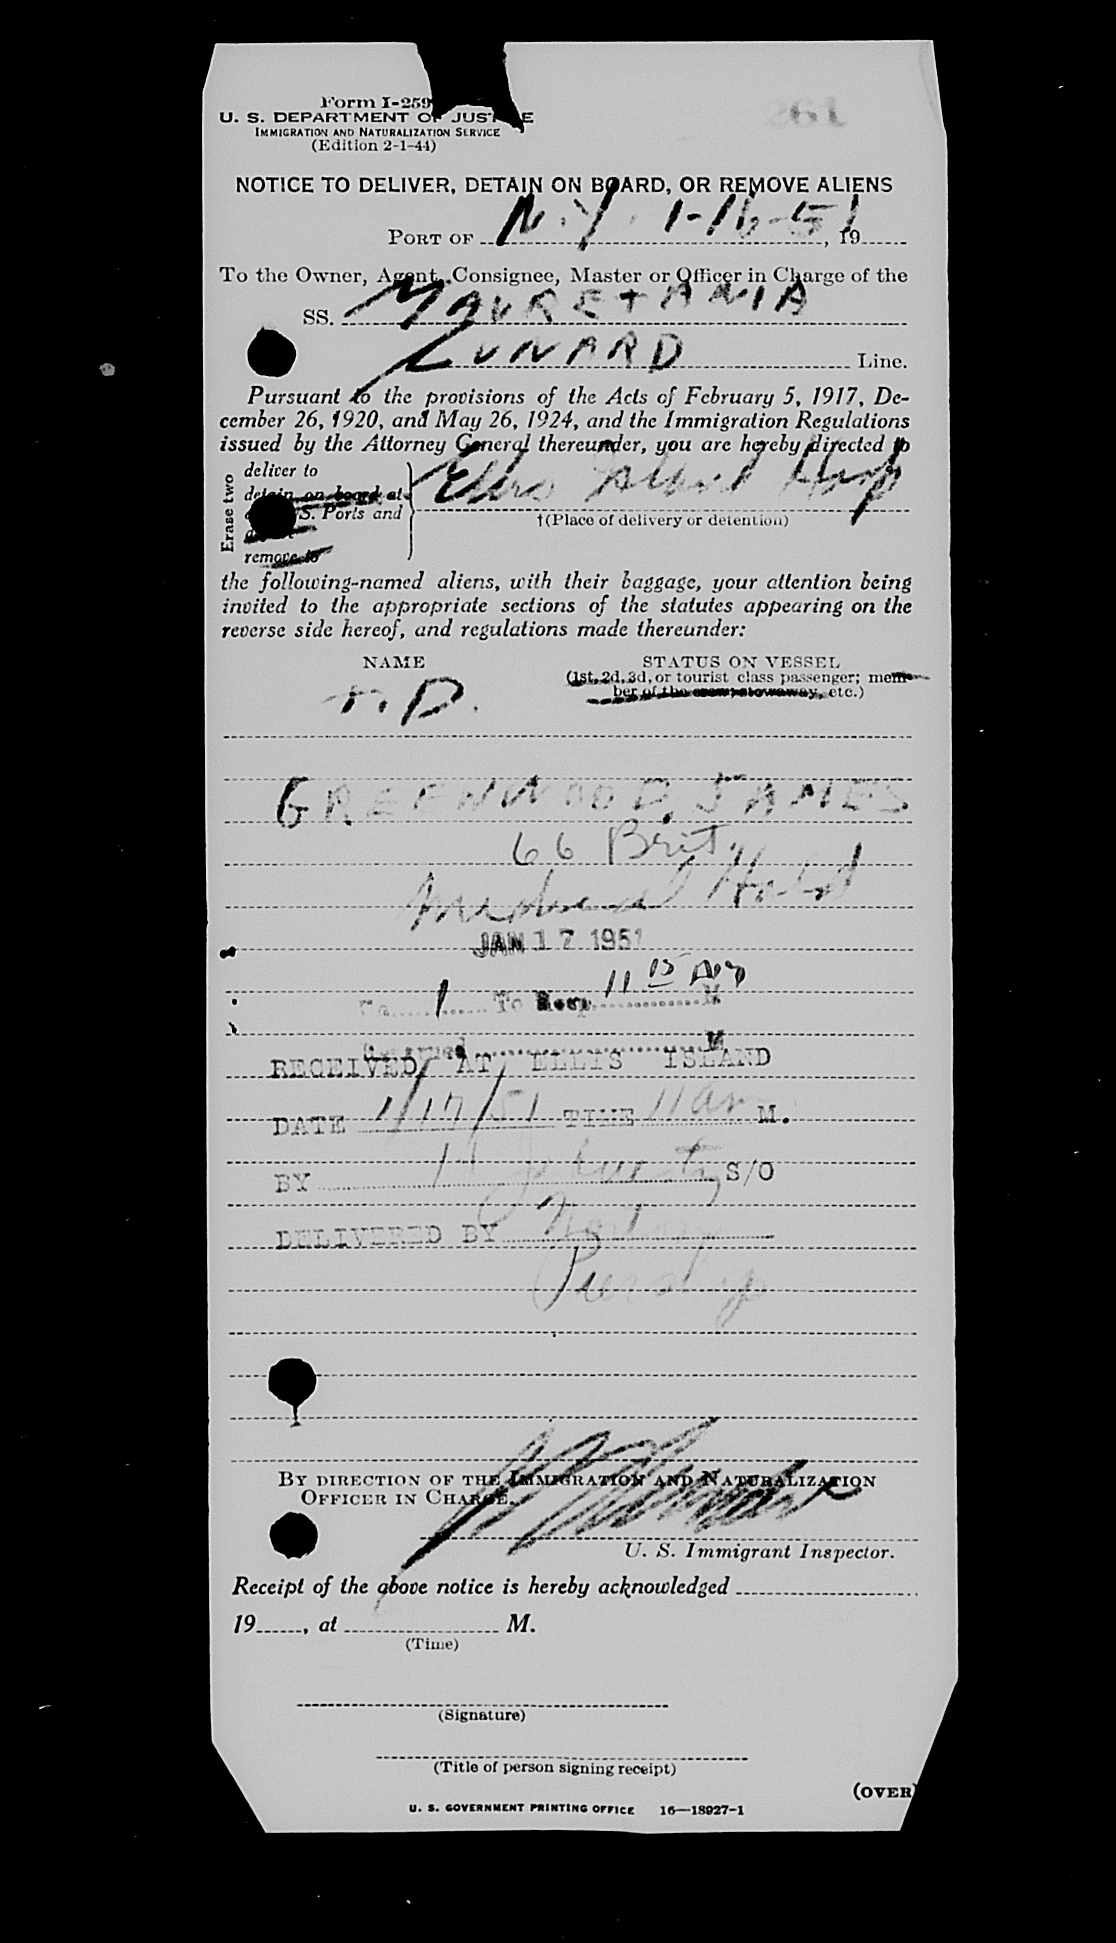 261
Form I-259
U. S. DEPARTMENT OF JUSTICE
IMMIGRATION AND NATURALIZATION SERVICE
(Edition 2-1-44)
NOTICE TO DELIVER, DETAIN ON BOARD, OR REMOVE ALIENS
PORT OF N.Y. 1-16-51, 19
To the Owner, Agent, Consignee, Master or Officer in Charge of the
SS. MAURETANIA
CUNARD Line.
Pursuant to the provisions of the Acts of February 5, 1917, De-
cember 26, 1920, and May 26, 1924, and the Immigration Regulations
issued by the Attorney General thereunder, you are hereby directed to
Erase two
deliver to
detain on board at
S. Ports and
remove to
Ellis Island Hosp
†(Place of delivery or detention)
the following-named aliens, with their baggage, your attention being
invited to the appropriate sections of the statutes appearing on the
reverse side hereof, and regulations made thereunder:
NAME STATUS ON VESSEL
(1st, 2d, 3d, or tourist class passenger; mem-
ber of the crew, stowaway, etc.)
T.D.
GREENWOOD, JAMES
66 Brit.
Medical Hold
JAN 17 1951
1 To Hosp. 11 15 AM M
M
RECEIVED AT ELLIS ISLAND
DATE 1/17/51 TIME 11 am M.
BY S/O
DELIVERED BY
BY DIRECTION OF THE IMMIGRATION AND NATURALIZATION
OFFICER IN CHARGE.
U. S. Immigrant Inspector.
Receipt of the above notice is hereby acknowledged
19, at M.
(Time)
(Signature)
(Title of person signing receipt)
(OVER)
U. S. GOVERNMENT PRINTING OFFICE 16—18927-1